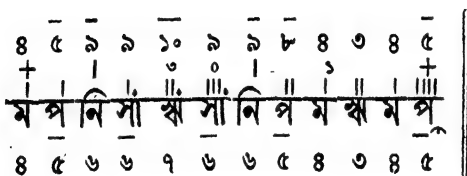 ৪ ৫ ৯ ৯ ১০ ৯ ৯ ৮ ৪ ৩ ৪ ৫
+ । ৩ ০ । ১ +
ম প নি র্সা র্ঋা র্সা নি প ম ঋা ম প
৪ ৫ ৬ ৬ ৭ ৬ ৬ ৫ ৪ ৩ ৪ ৫